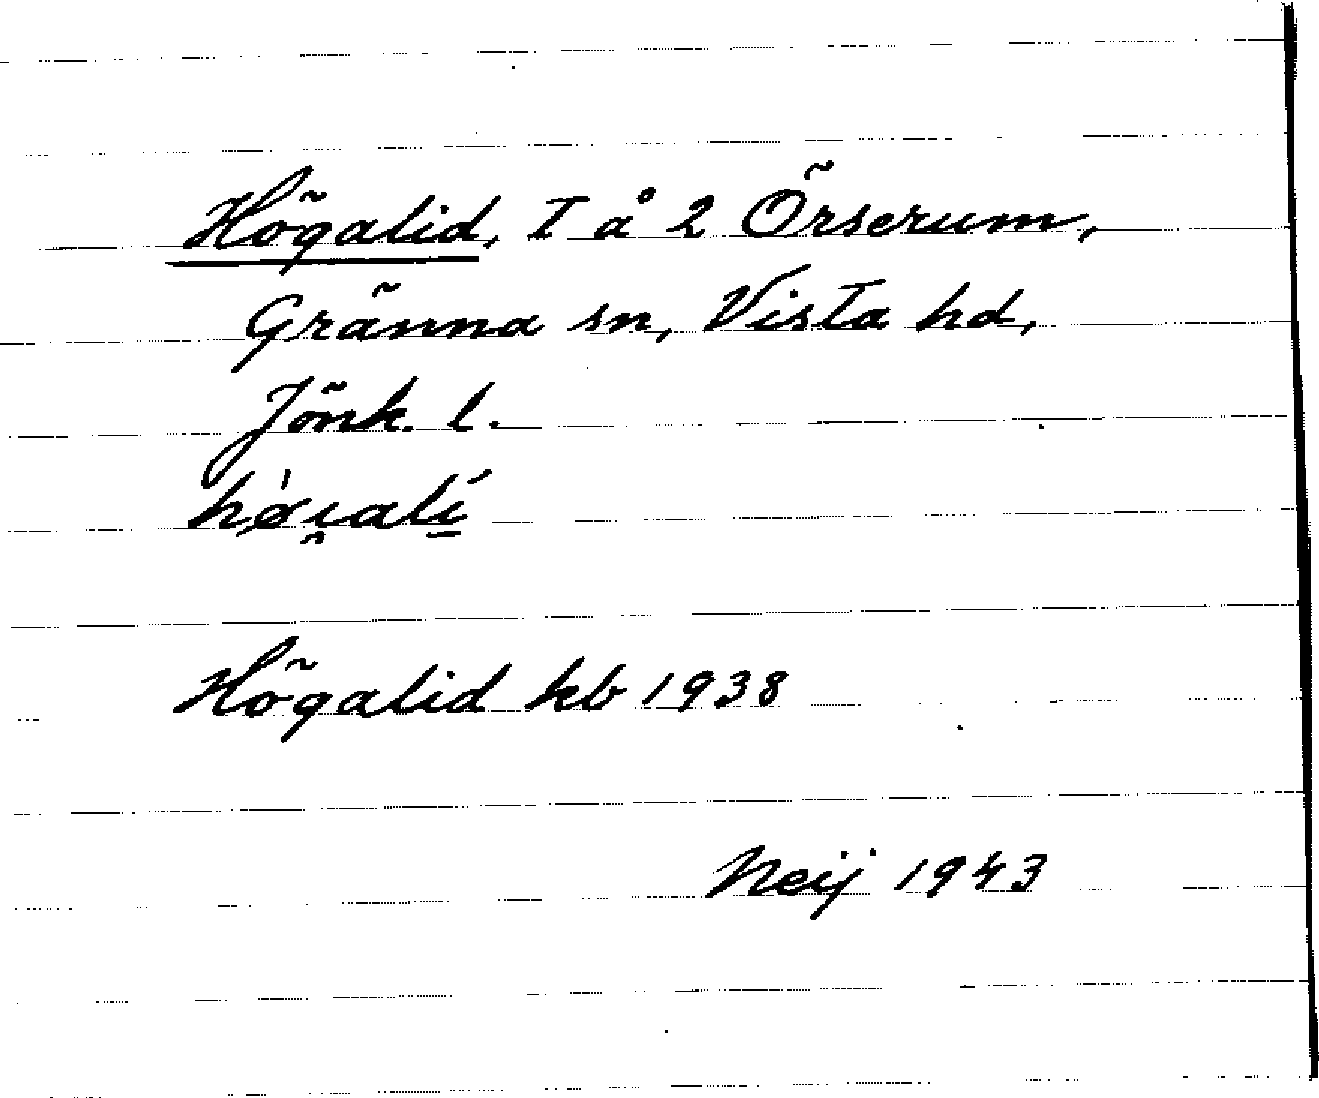 Högalid, T å 2 Örserum,
Gränna sn, Vista hd,
Jönk. l.
Högalid kb 1938
Neij 1943